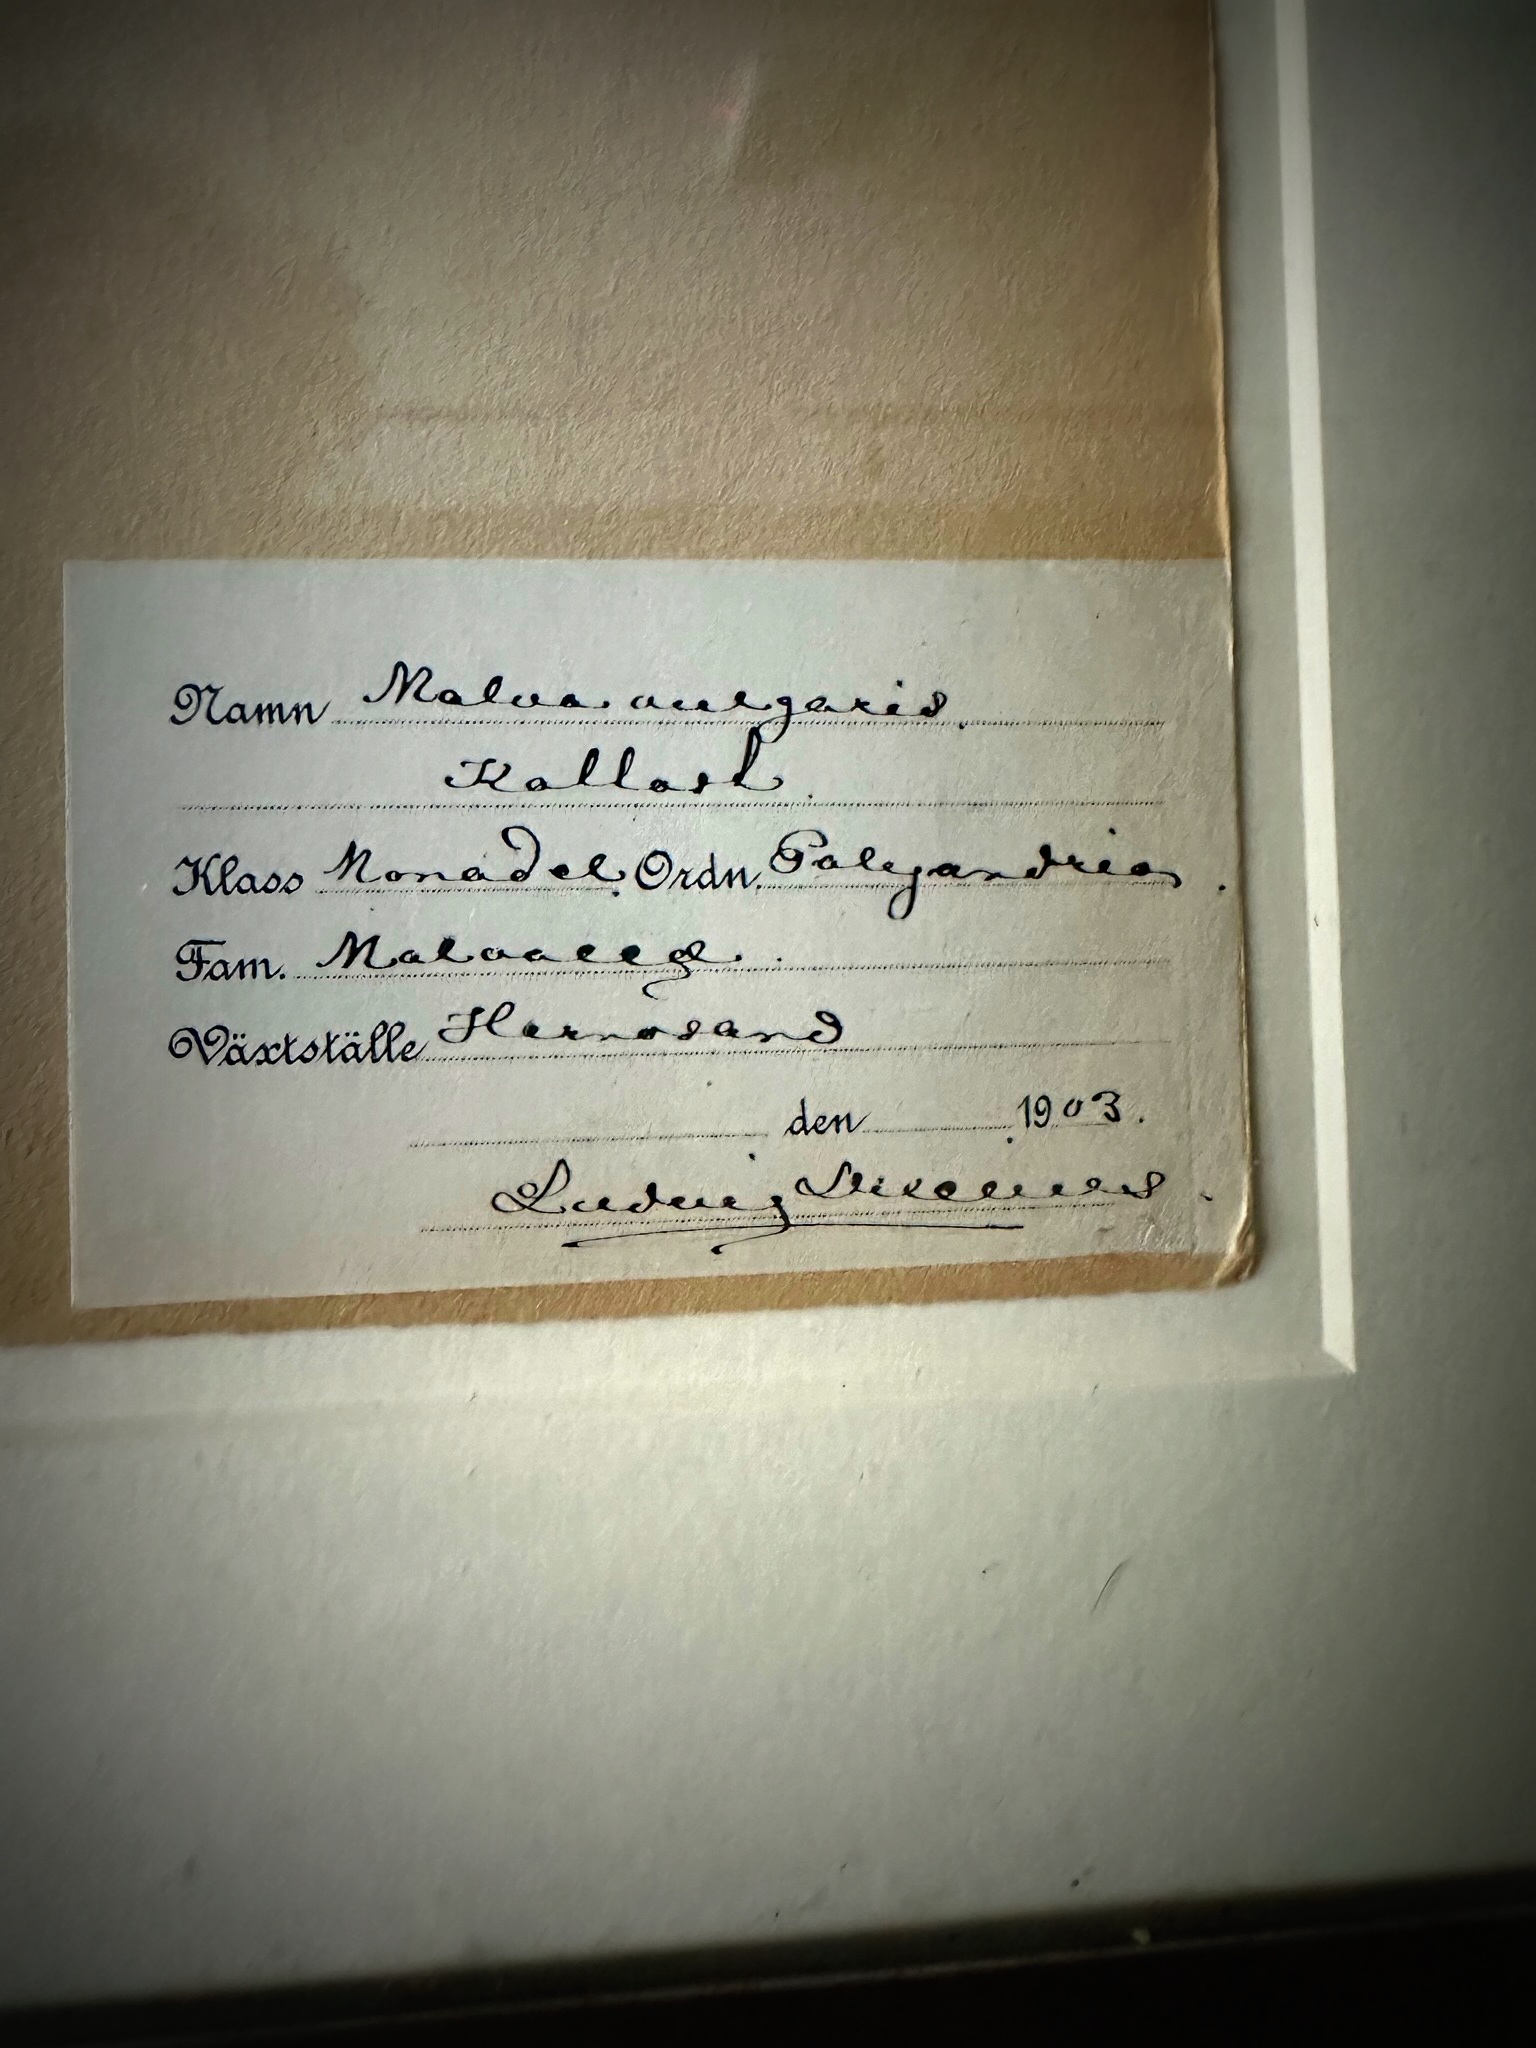 Namn Malva vulgaris.
Kattost.
Klass Monadel. Ordn. Polyandria.
Fam. Malvaceæ.
Växtställe Hernösand
den 1903.
Ludwig